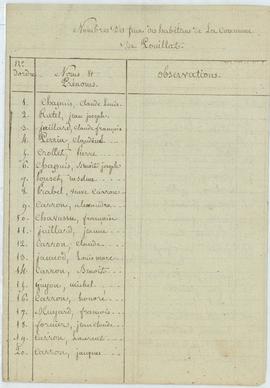 Nombre des feux des habitans de La Commune
de Pouillat
No d'ordre
Noms et Prénoms.
observations.
1. Chagnis, Claude Louis
2. Rutet, jean joseph
3. jaillard, Claude françois
4. Perrin, Claudine
5. Crollet, Pierre
6. Chagnis, Benoit joseph
7. Pouset, anselme
8. Crabel, veuve Carron
9. Carron, alexandre
10. Chavassu, françoise
11. jaillard, jeanne
12. Carron, Claude
13. janniod, Louis marc
14. Carron, Benoit
15. guyon, michel
16. Carron, honoré
17. Mugard, françois
18. fornier, jean claude
19. Carron, Laurent
20. Carron, jacques